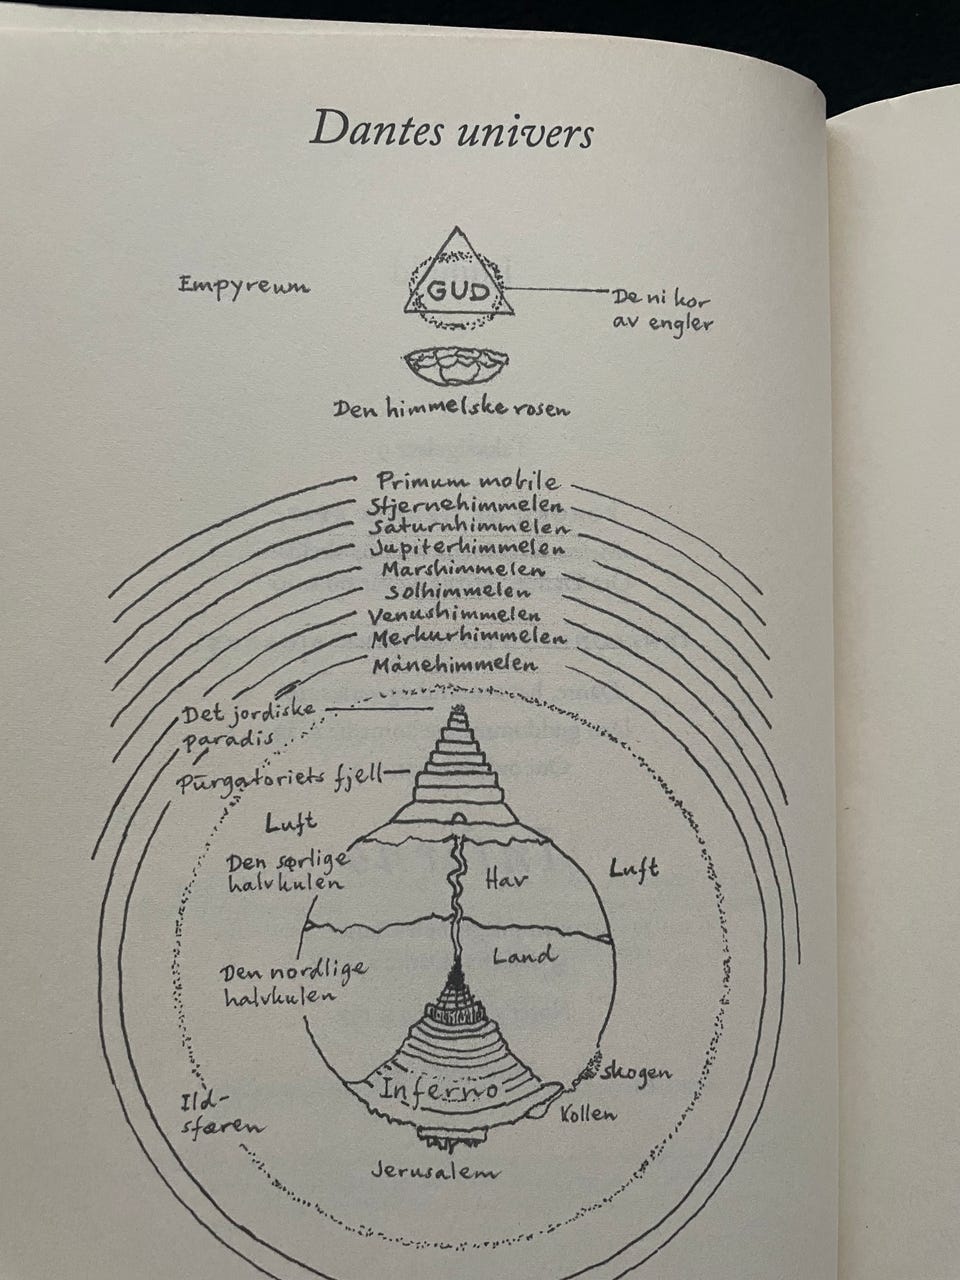 Dantes univers
Empyreum
GUD
De ni kor
av engler
Den himmelske rosen
Primum mobile
Stjernehimmelen
Saturnhimmelen
Jupiterhimmelen
Marshimmelen
Solhimmelen
Venushimmelen
Merkurhimmelen
Månehimmelen
Det jordiske
paradis
Purgatoriets fjell
Luft
Den sørlige
halvkulen
Hav
Luft
Land
Den nordlige
halvkulen
Inferno
Skogen
Kollen
Ild-
sfæren
Jerusalem